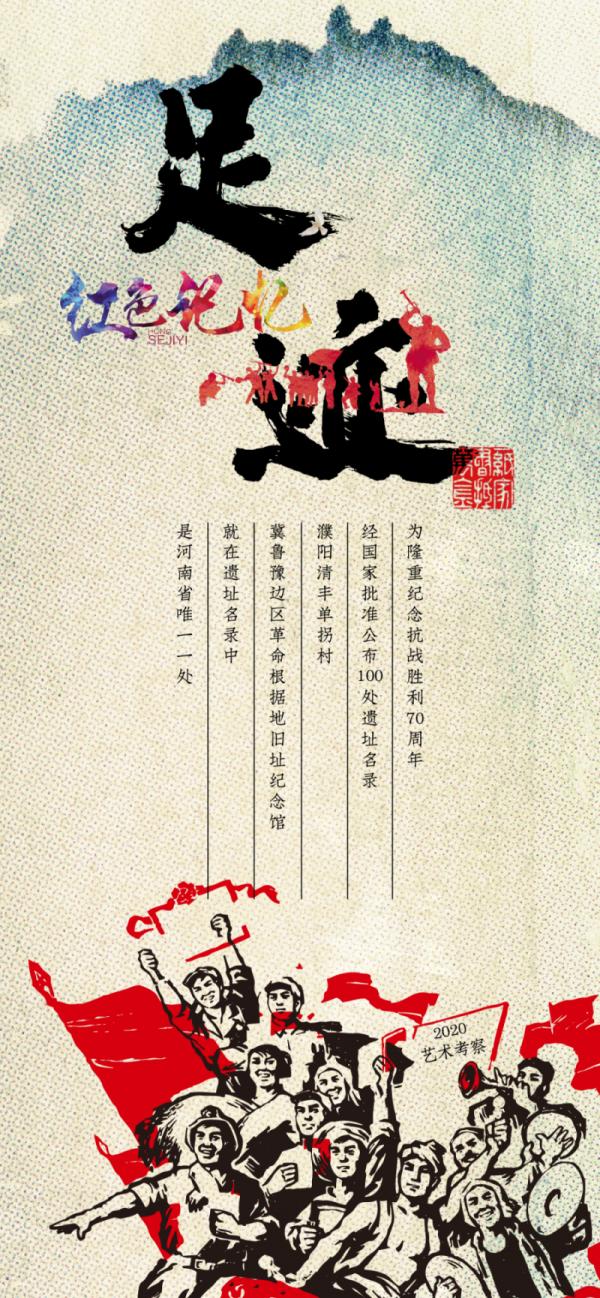 足
迹
红色记忆
HONG
SEJIYI
为隆重纪念抗战胜利70周年
经国家批准公布100处遗址名录
濮阳清丰单拐村
冀鲁豫边区革命根据地旧址纪念馆
就在遗址名录中
是河南省唯一一处
2020
艺术考察